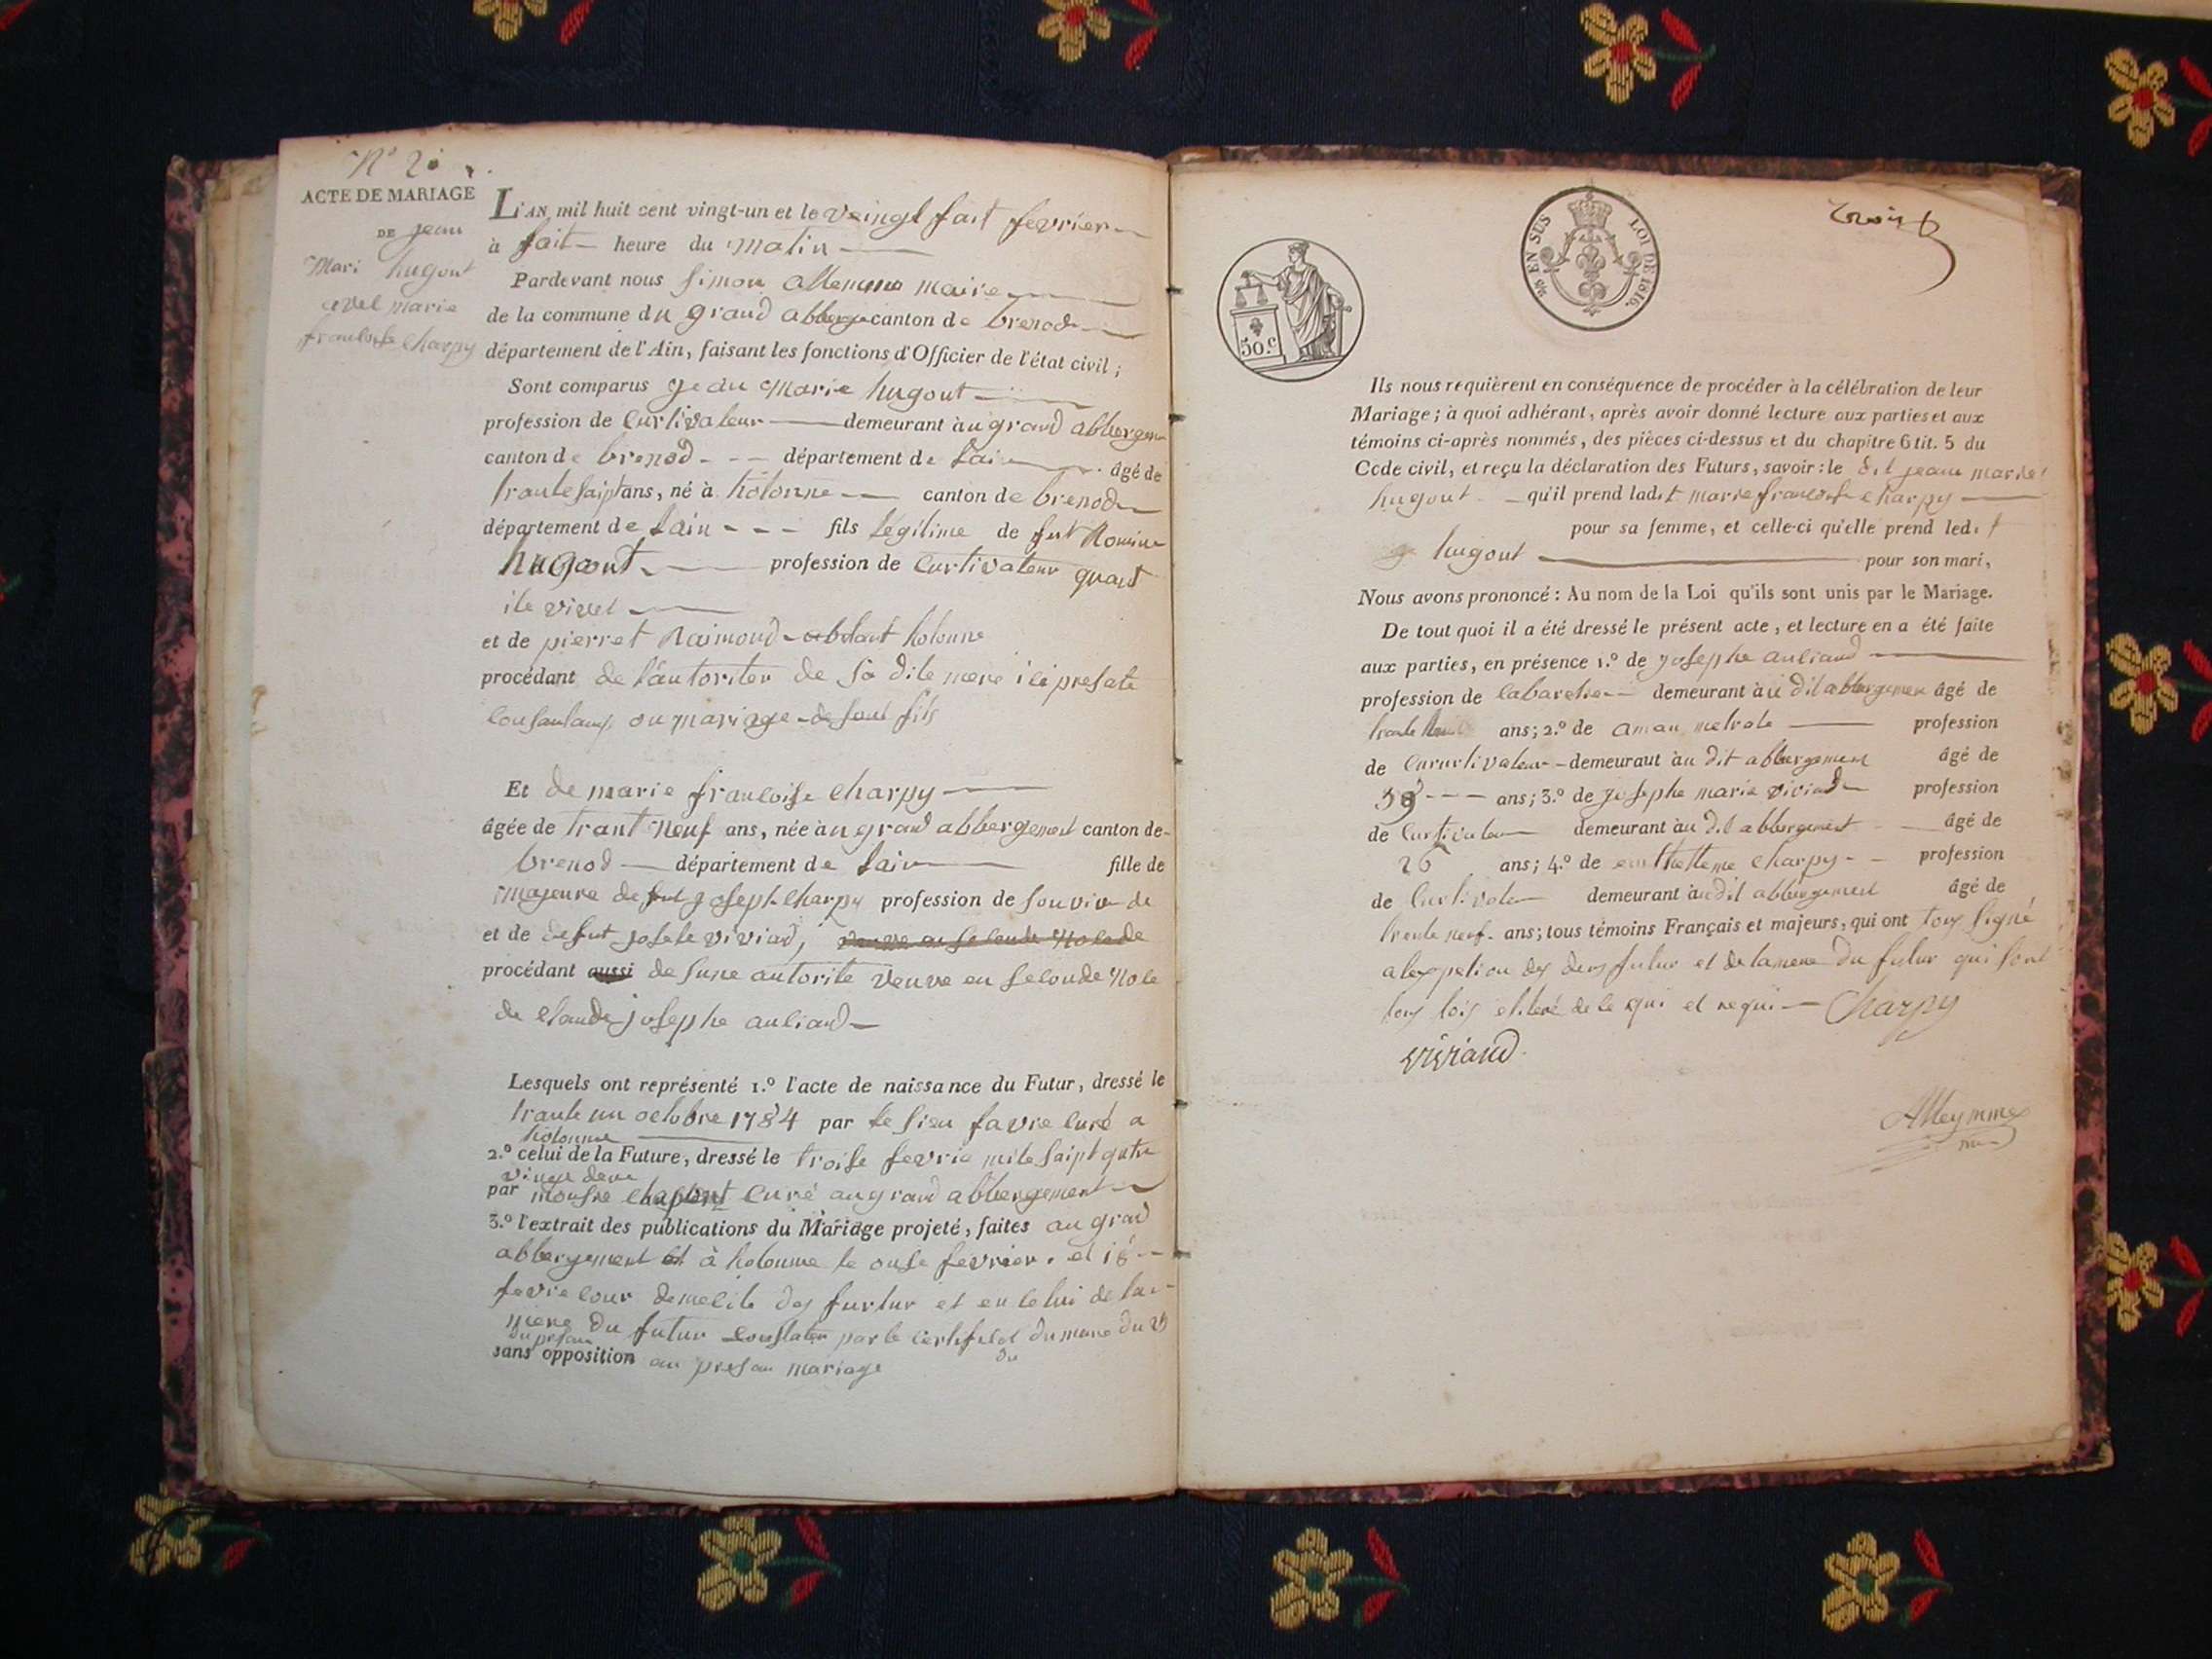 N° 2
ACTE DE MARIAGE
DE jean
Mari hugont
avel marie
francoise Charpy
L'AN mil huit cent vingt-un et le veingt fait fevrier
à fait heure du matin
Pardevant nous Simon allemme maire
de la commune du grand abberge canton de brenod
département de l'Ain, faisant les fonctions d'Officier de l'état civil;
Sont comparus jean Marie hugont
profession de Curtivateur demeurant au grand abbergem
canton de brenod département de lain âgé de
trante saipt ans, né à hotonne canton de brenod
département de lain fils legitime de fut Romin
hugont profession de Curtivateur quant
ile vivet
et de pierret Raimond hotonne
procédant de l'autoriter de sa dite mere ici presate
ou mariage de sont fils
Et de marie francoise Charpy
âgée de trant neuf ans, née au grand abbergement canton de
brenod département de lain fille de
majeure de fut joseph Charpy profession de son vivan de
et de defut josete viviand, veuve en seconde Nose de
procédant aussi de sune autorite veuve en seconde Nose
de claude josephe auliand
Lesquels ont représenté 1.° l'acte de naissance du Futur, dressé le
trante un octobre 1784 par le sieu favre curé a
hotonne
2.° celui de la Future, dressé le troise fevrie mile saipt qutre
vingt deux
par monsre curé au grand abbergement
3.° l'extrait des publications du Mariage projeté, faites au grand
abbergement et à hotonne le onse fevrier. et 18
fevrie cour demecile des furtur et en celui de la
mere du futur constater par le certificat du maire du
du presan
sans opposition au presan mariage
50.c
EN SUS LOI DE 1816.
trois
Ils nous requièrent en conséquence de procéder à la célébration de leur
Mariage; à quoi adhérant, après avoir donné lecture aux parties et aux
témoins ci-après nommés, des pièces ci-dessus et du chapitre 6 tit. 5 du
Code civil, et reçu la déclaration des Futurs, savoir: le dit jean marie
hugont qu'il prend ladit marie francoise Charpy
pour sa femme, et celle-ci qu'elle prend ledit
hugont pour son mari,
Nous avons prononcé: Au nom de la Loi qu'ils sont unis par le Mariage.
De tout quoi il a été dressé le présent acte, et lecture en a été faite
aux parties, en présence 1.° de josephe auliand
profession de cabaretie demeurant au dit abbergemen âgé de
trante ans; 2.° de aman metrate profession
de Cururtivateur demeurant àu dit abbergement âgé de
39 ans; 3.° de josephe marie viviand profession
de Curtivateur demeurant àu dit abbergement âgé de
26 ans; 4.° de Charpy profession
de Curtivateur demeurant àu dit abbergement âgé de
trente neuf ans; tous témoins Français et majeurs, qui ont tous signé
a lexpetion des deux futur et de la mere du futur qui sont
tous tois de ce qui et requi Charpy
viviand
Alleymme